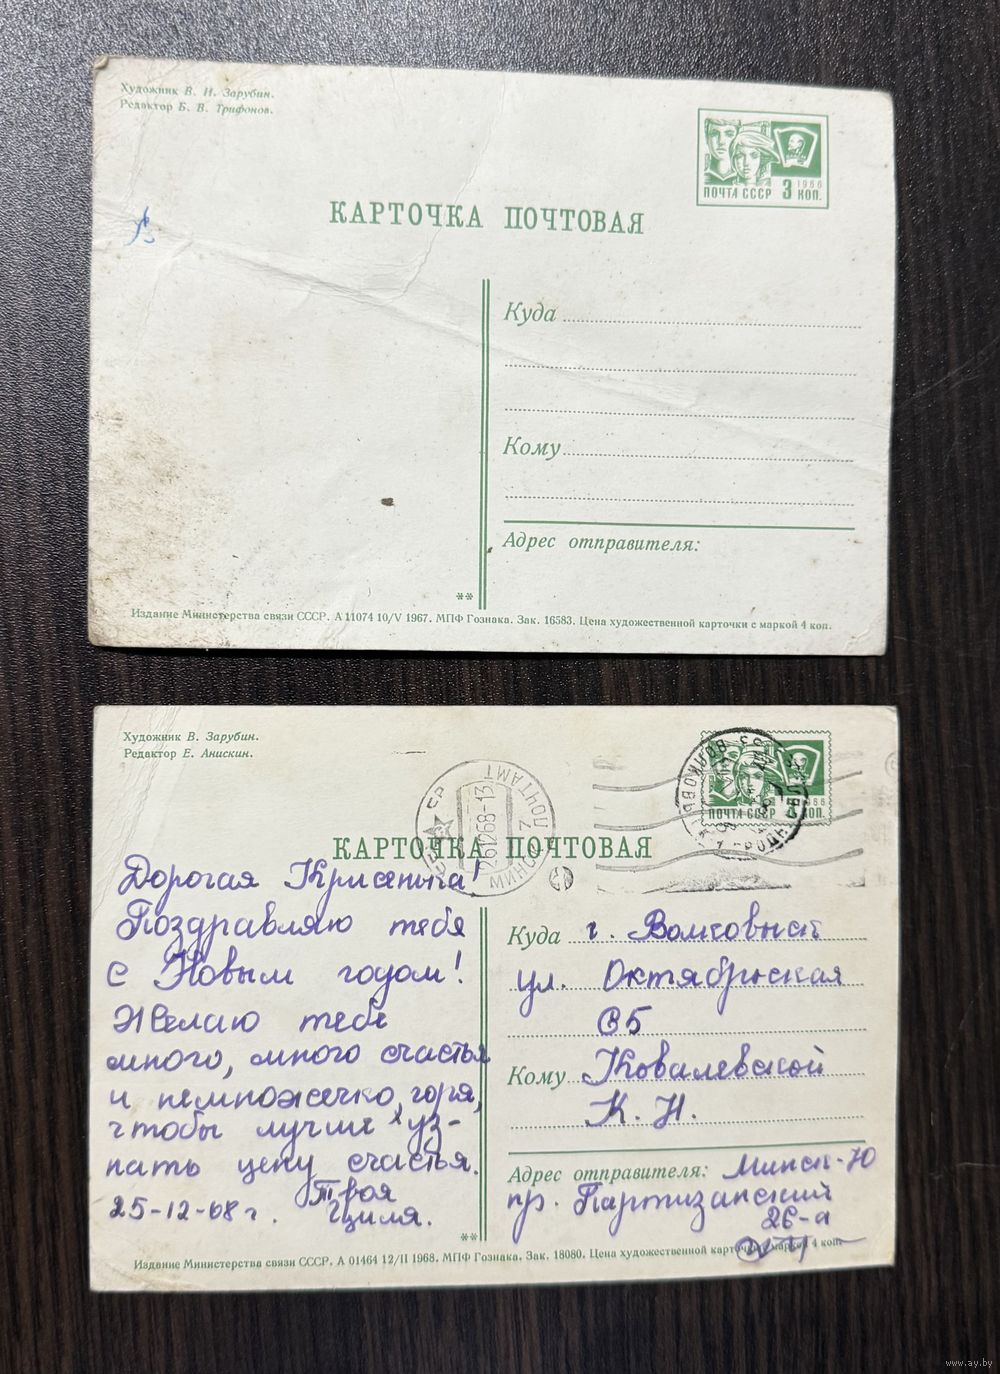 Художник В. И. Зарубин.
Редактор Б. В. Трифонов.
1966
ПОЧТА СССР 3 КОП.
КАРТОЧКА ПОЧТОВАЯ
Куда
Кому
Адрес отправителя:
**
Издание Министерства связи СССР. А 11074 10/V 1967. МПФ Гознака. Зак. 16583. Цена художественной карточки с маркой 4 коп.
Художник В. Зарубин.
Редактор Е. Анискин.
ПОЧТА СССР КОП.
МИНСК 7 ПОЧТАМТ
261268-13
КАРТОЧКА ПОЧТОВАЯ
Дорогая Крисенька!
Поздравляю тебя
с Новым годом!
Желаю тебе
много, много счастья
и немножечко горя,
чтобы лучше уз-
нать цену счастья.
Твоя
25-12-68 г. Циля.
Куда г. Волковыск
ул. Октябрьская
Кому Ковалевской
К. Н.
Адрес отправителя: Минск-70
пр. Партизанский
26-а
**
Издание Министерства связи СССР. А 01464 12/II 1968. МПФ Гознака. Зак. 18080. Цена художественной карточки с маркой 4 коп.
www.ay.by